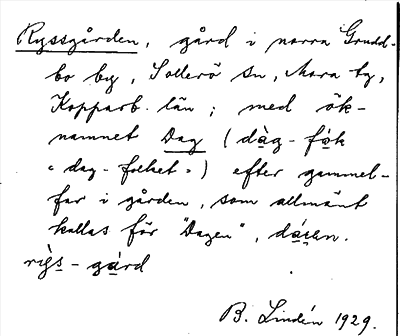 Ryssgården, gård i norra Grudd-
bo by, Sollerö sn, Mora tg,
Kopparb. län; med ök-
namnet Dag (dàg-fòk
"dag-folket") efter gammel-
far i gården, som allmänt
kallas för "Dagen", dáɡen.
rìgs-gàrd
B. Lindén 1929.